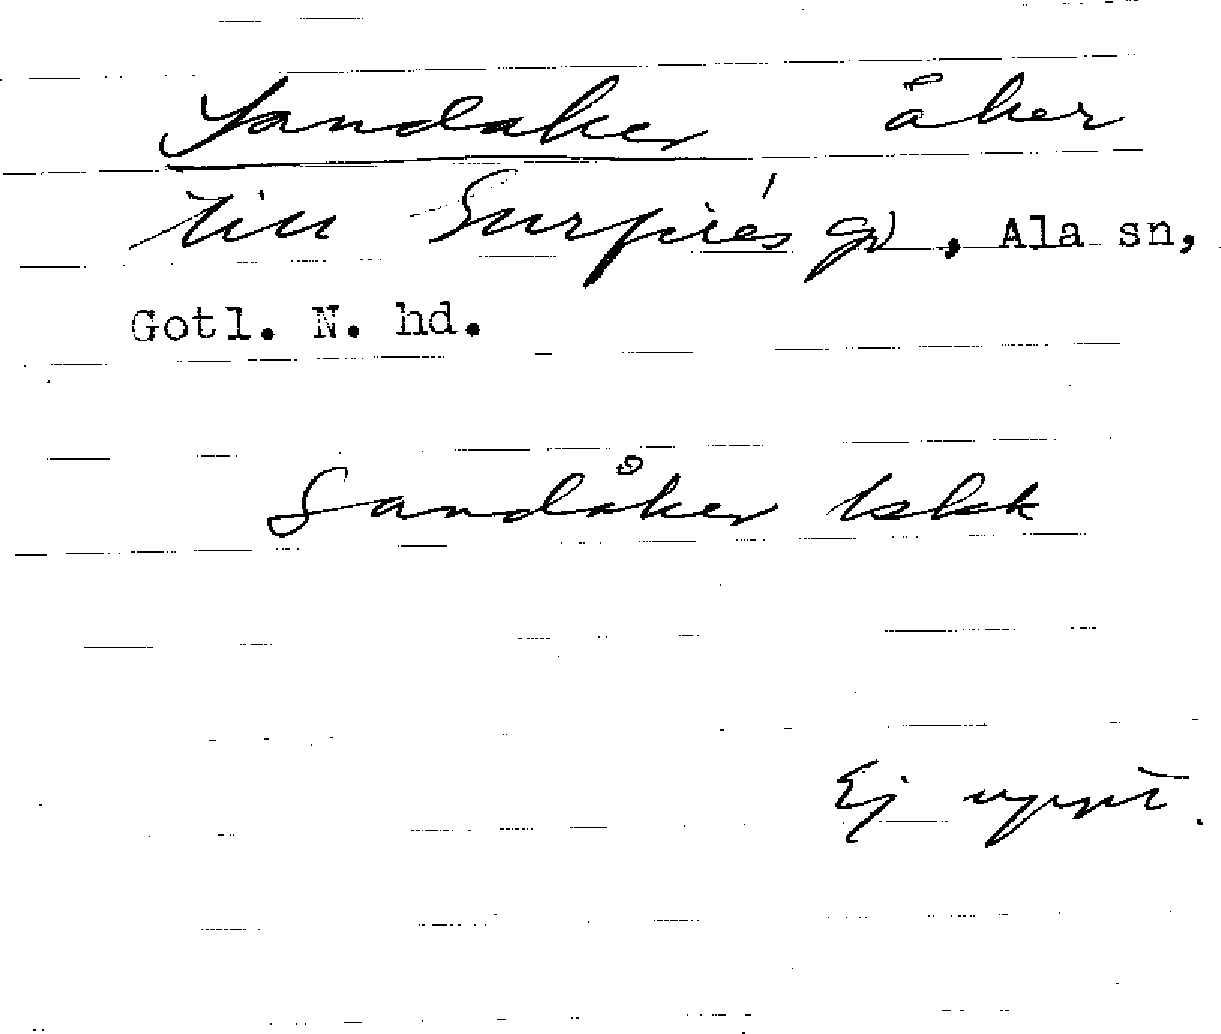 Sandaker åker
till Surpiés gd, Ala sn,
Gotl. N. hd.
Sandåker lskk
Ej uppt.